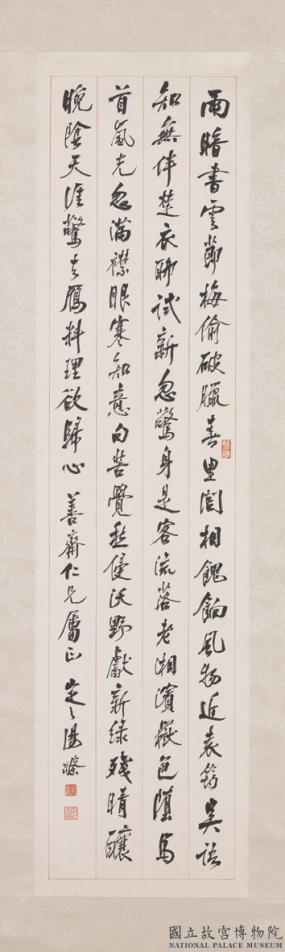 雨暗書雲節梅偷破臘春里閭相餽餉風物近袁筠吳語
知無伴楚衣聊試新忽驚身是客流落老湘濱極色隨馬
首嵐光忽滿襟眼寒知意句苦覺愁侵沃野獻新綠殘晴釀
晚陰天涯驚去雁料理欲歸心 善齋仁兄屬正 定之湯滌
國立故宮博物院
NATIONAL PALACE MUSEUM